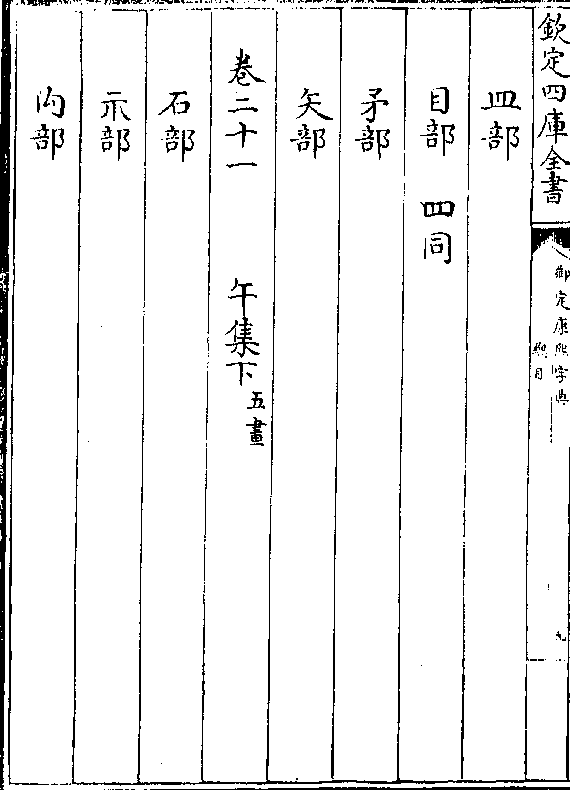 欽定四庫全書
御定康熙字典
總目
九
皿部
目部 罒同
矛部
矢部
卷二十一 午集下五畫
石部
示部
禸部